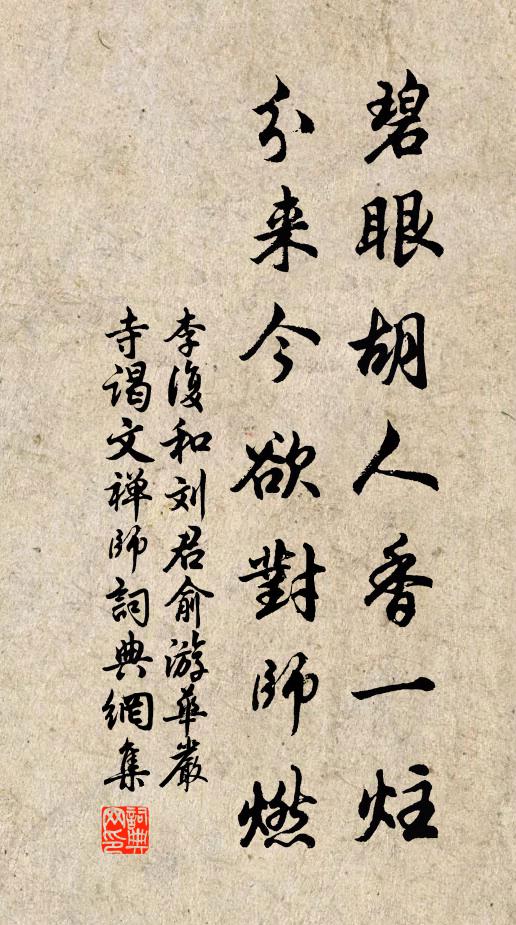 碧眼胡人香一炷
分来今欲對師燃
李復和刘君俞游華嚴
寺谒文禅師詞典網集
詞典
网印